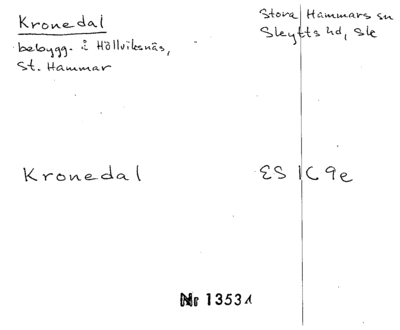 Kronedal
bebygg. i Höllviksnäs,
St. Hammar
Stora Hammars sn
Skytts hd, Sk
Kronedal
ES 1C 9e
Nr 13531